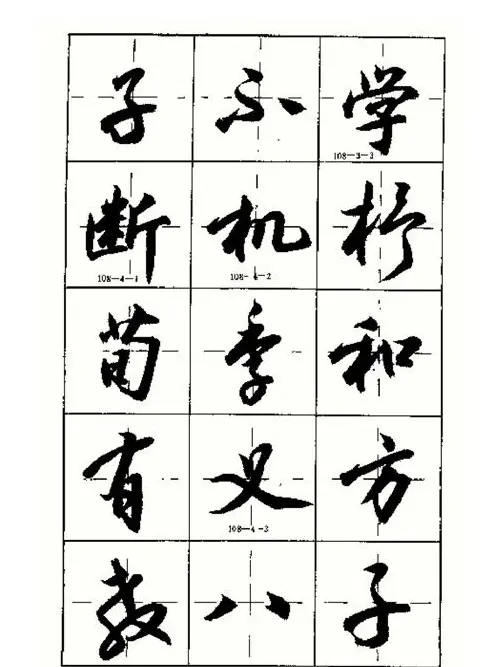 子不学
108—3—3
断机杼
108—4—1 108—4—2
荀季和
有义方
108—4—3
教八子